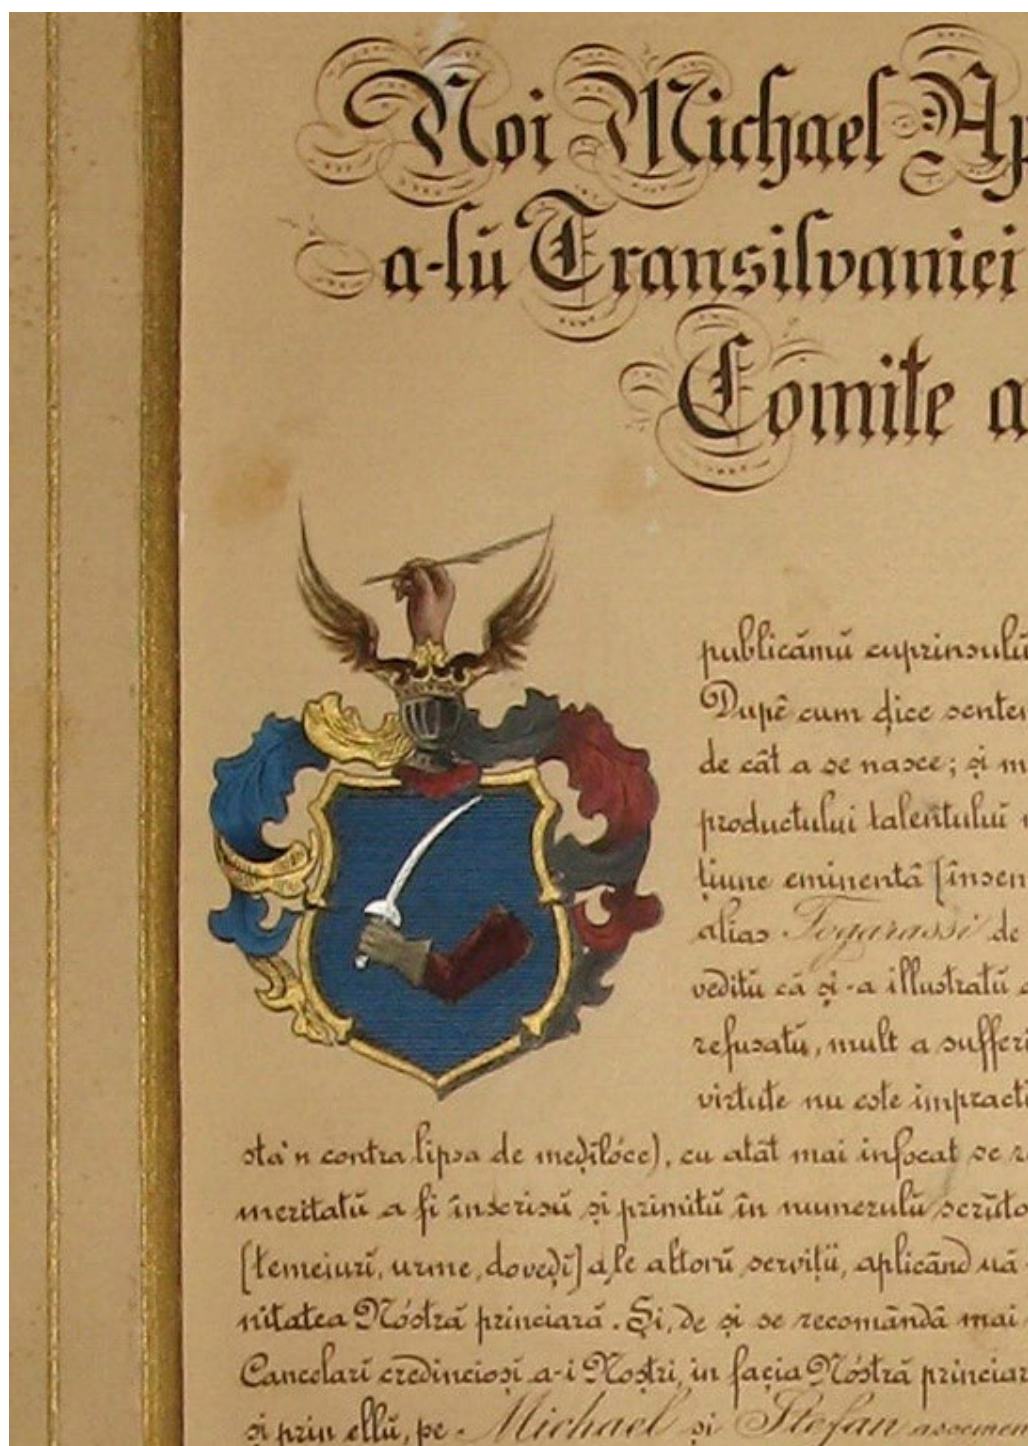 Noi Michael Ap
a-lŭ Transilvaniei
Comite a
publicămŭ cuprinsulŭ
Dupê cum dice senten
de cât a se nasce; și m
productului talentului
țiune eminentă [însen
alias Fogarassi de
veditŭ că și-a illustratŭ
refusatŭ, mult a sufferi
virtute nu este impracti
sta'n contra lipsa de med̦ilóce), cu atât mai infocat se
meritatŭ a fi înscrisŭ și primitŭ în numerulŭ
[temeiurĭ, urme, doved̦ĭ] ale altorŭ serviții, aplicând uă
nitatea Nóstră princiară. Și, de și se recomândă mai
Cancelarĭ credincioșĭ a-i Noștri, in facia Nóstră princiar
și prin ellŭ, pe Michael și Stefan asemen